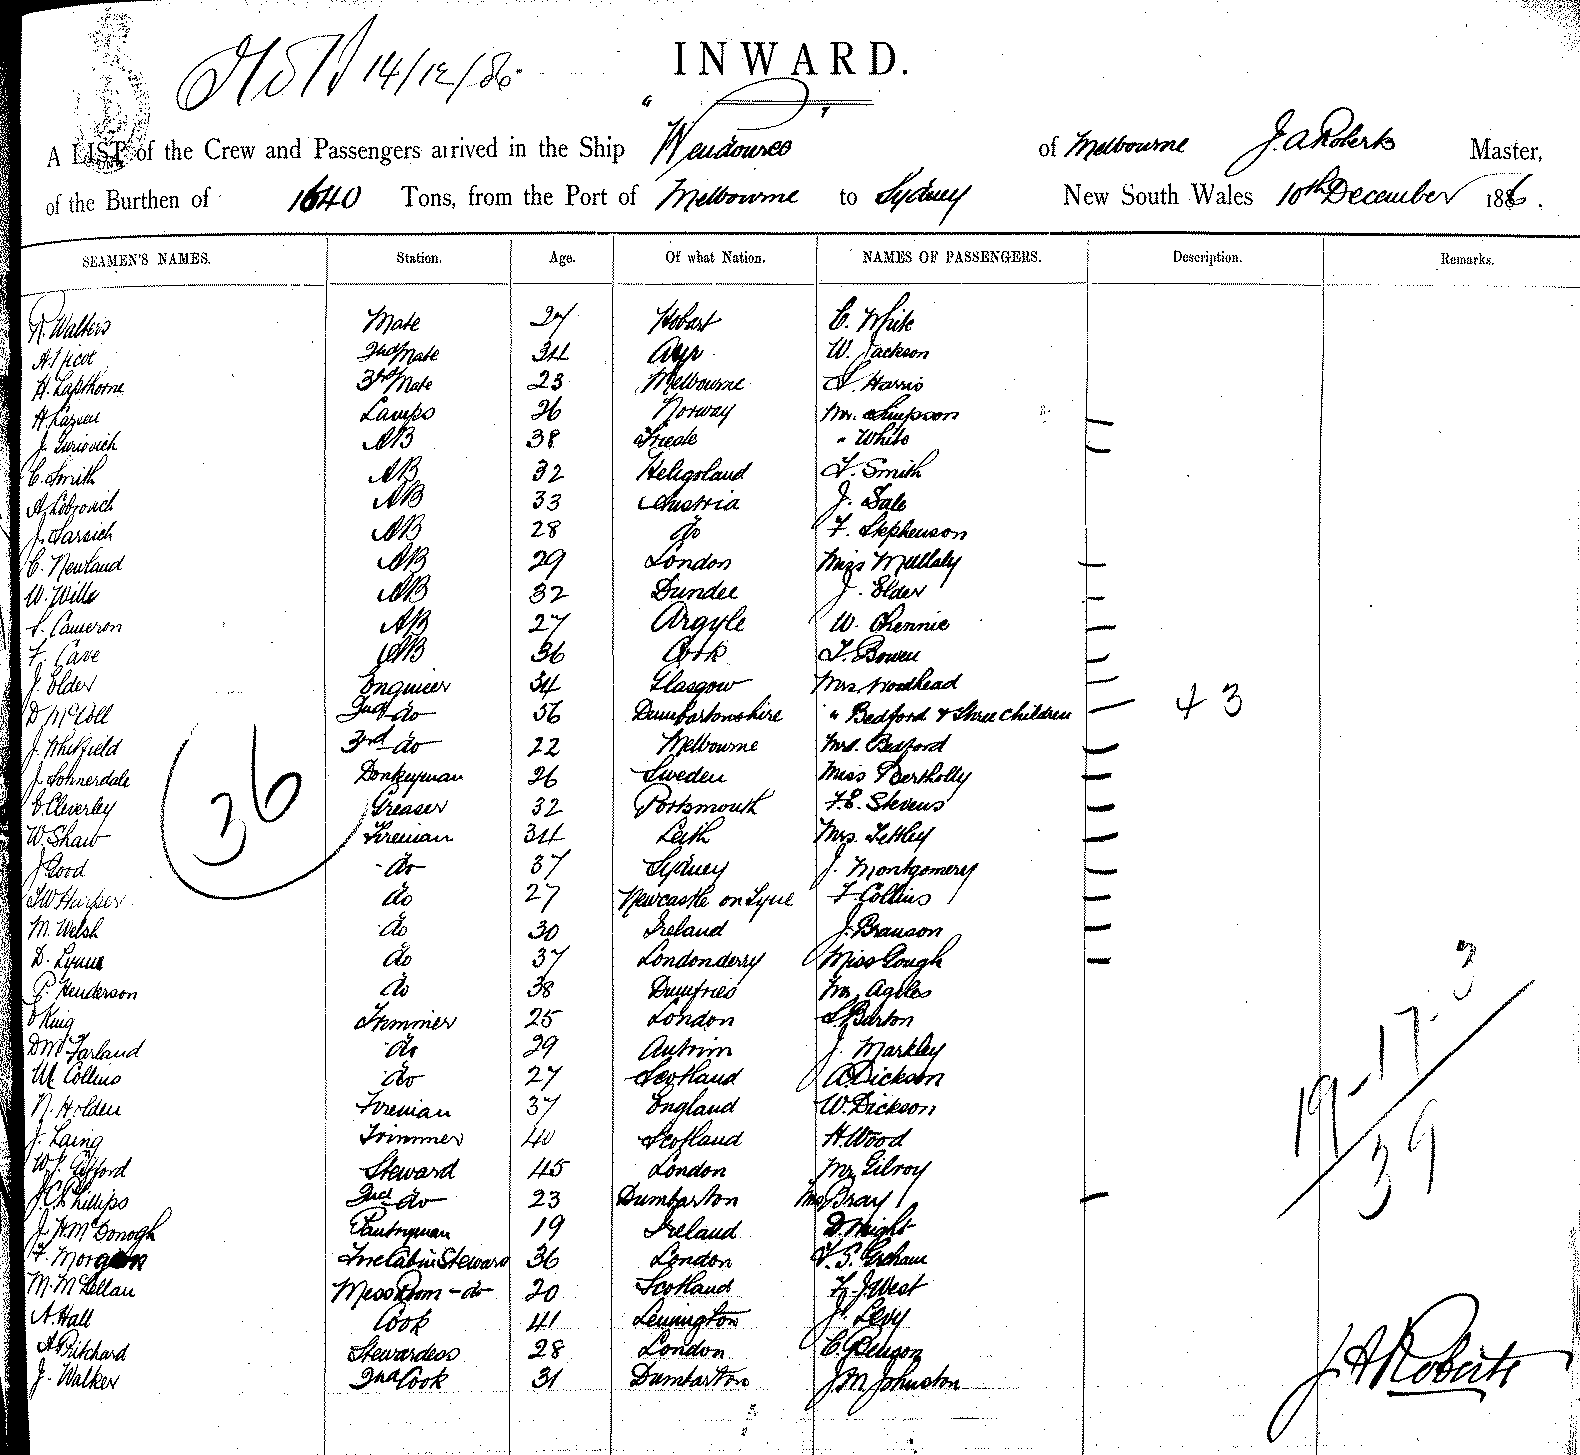 14/12/86
INWARD.
A LIST of the Crew and Passengers arrived in the Ship "Wendouree" of Melbourne J. A Roberts Master,
of the Burthen of 1640 Tons, from the Port of Melbourne to Sydney New South Wales 10th December 1886.
SEAMEN'S NAMES. Station. Age. Of what Nation. NAMES OF PASSENGERS. Description. Remarks.
R. Walters Mate 27 Hobart C. White
2nd Mate 34 Ayr W. Jackson
H. Lapthorne 3rd Mate 23 Melbourne S. Harris
Lamps 26 Norway Mr. Simpson
AB 38 " White
C. Smith AB 32 Heligoland F. Smith
AB 33 Austria J. Sale
AB 28 do F. Stephenson
C. Newland AB 29 London Miss Mullaly
W. Wills AB 32 Dundee J. Elder
Cameron AB 27 Argyle W. Chennie
F. Cave AB 36 Cork T. Bowen
J. Elder Engineer 34 Glasgow Mrs Woodhead
D McColl 2nd do 56 Dumbartonshire " Bedford & three children + 3
J. Whitfield 3rd do 22 Melbourne Mrs. Bedford
Donkeyman 26 Sweden Miss Bertholly
Cleverley Greaser 32 Portsmouth F. E. Stevens
36
W. Shaw Fireman 34 Leith Mrs. Tettley
J Good do 37 Sydney J. Montgomery
Harper do 27 Newcastle on Tyne F Collins
M. Welsh do 30 Ireland J. Branson
D. Lynn do 37 Londonderry Miss Gough
P. Henderson do 38 Dumfries Mr. Agiles
King Trimmer 25 London S. Barton
D McFarland do 29 Antrim J. Markley
M Collins do 27 Scotland A. Dickson
N. Holden Fireman 37 England W. Dickson
J. Laing Trimmer 40 Scotland H. Wood
W. J. Gifford Steward 45 London Mr Gilroy
J. C. Phillips 2nd do 23 Dumbarton Mrs Bray
J. H. McDonogh Pantryman 19 Ireland D Wright
F. Morgan Fore Cabin Steward 36 London F. S. Graham
M. McLellan Mess Room - do 20 Scotland F. J. West
A. Hall Cook 41 Lemington J. Levy
A Pritchard Stewardess 28 London C. Benson
J. Walker 2nd Cook 31 Dumbarton J. M Johnston
19 - 17 - 3
39
J. A Roberts